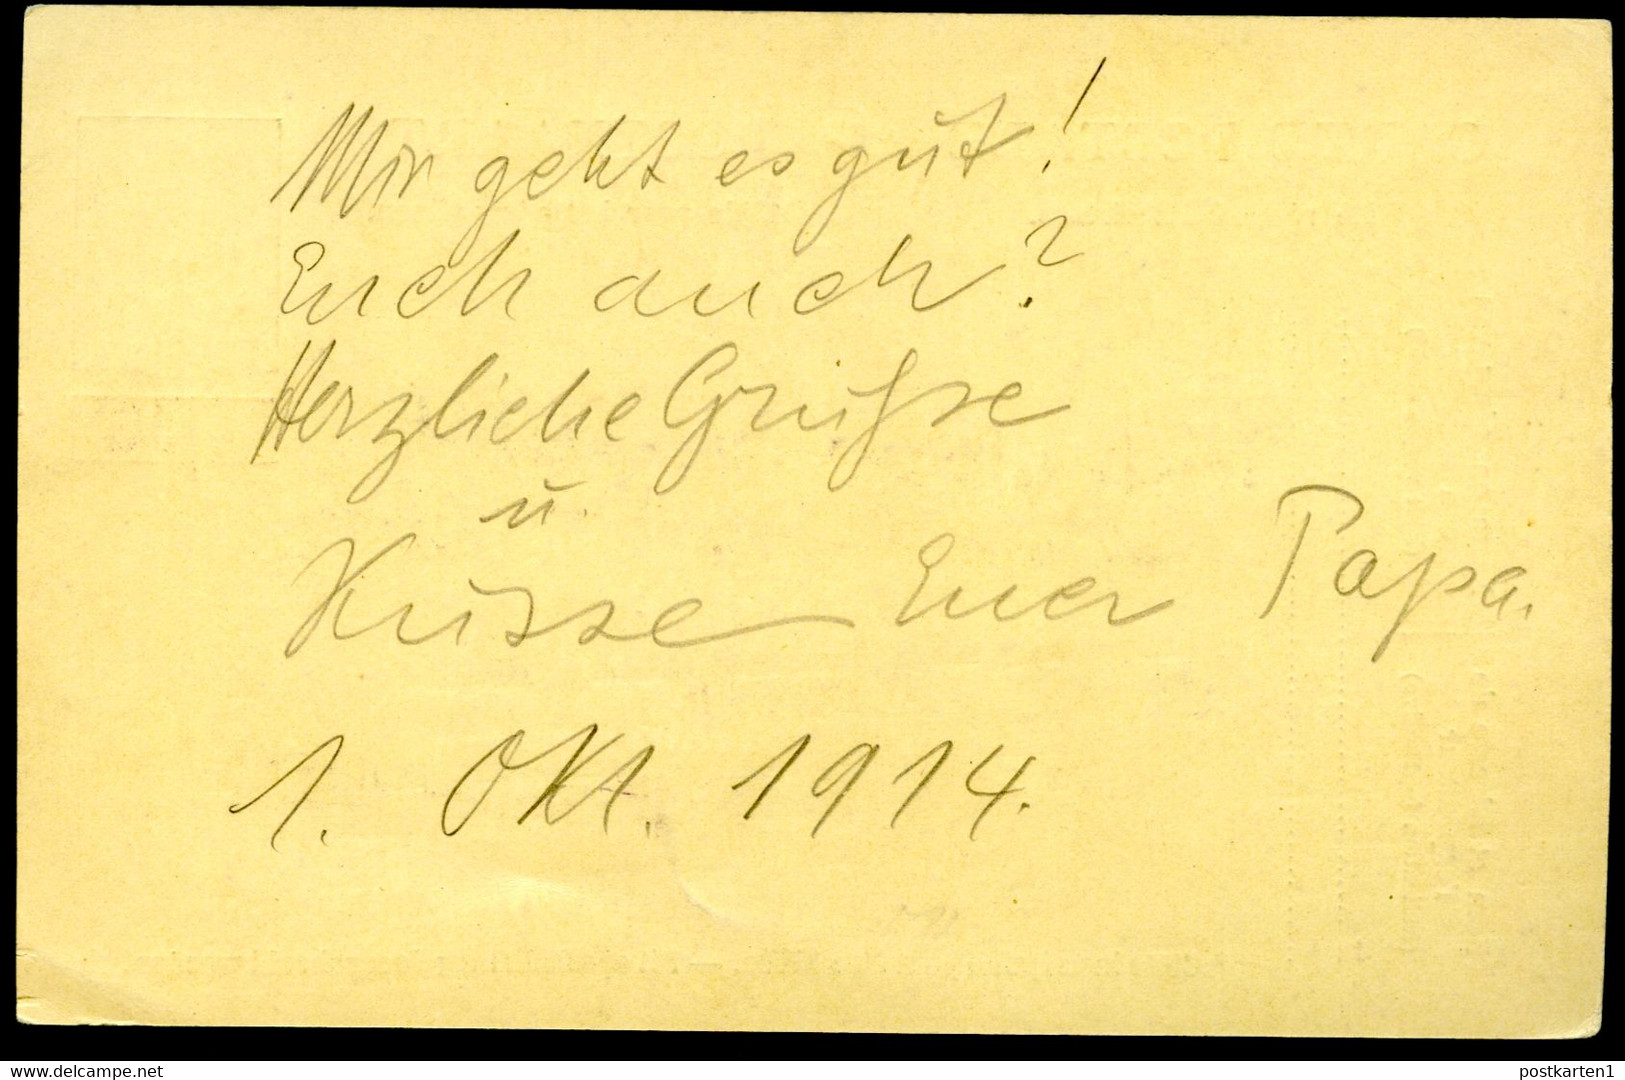 Mir geht es gut!
Euch auch?
Herzliche Grüsse
u.
Küsse Euer Papa.
1. Okt. 1914.
delcampe.net
postkarten1